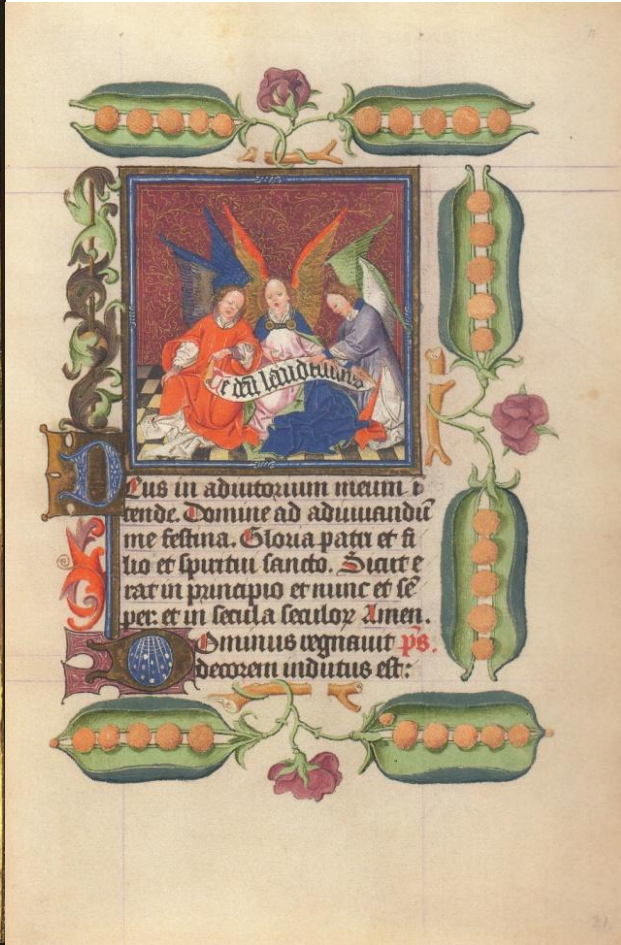 Te deū laudamus
Deus in adiutorium meum i
tende. Domine ad adiuuandū
me festina. Gloria patri et fi
lio et spiritui sancto. Sicut e
rat in principio et nunc et sē
per: et in secula seculoꝝ Amen.
Dominus regnauit p̄s.
decorem indutus est:
21